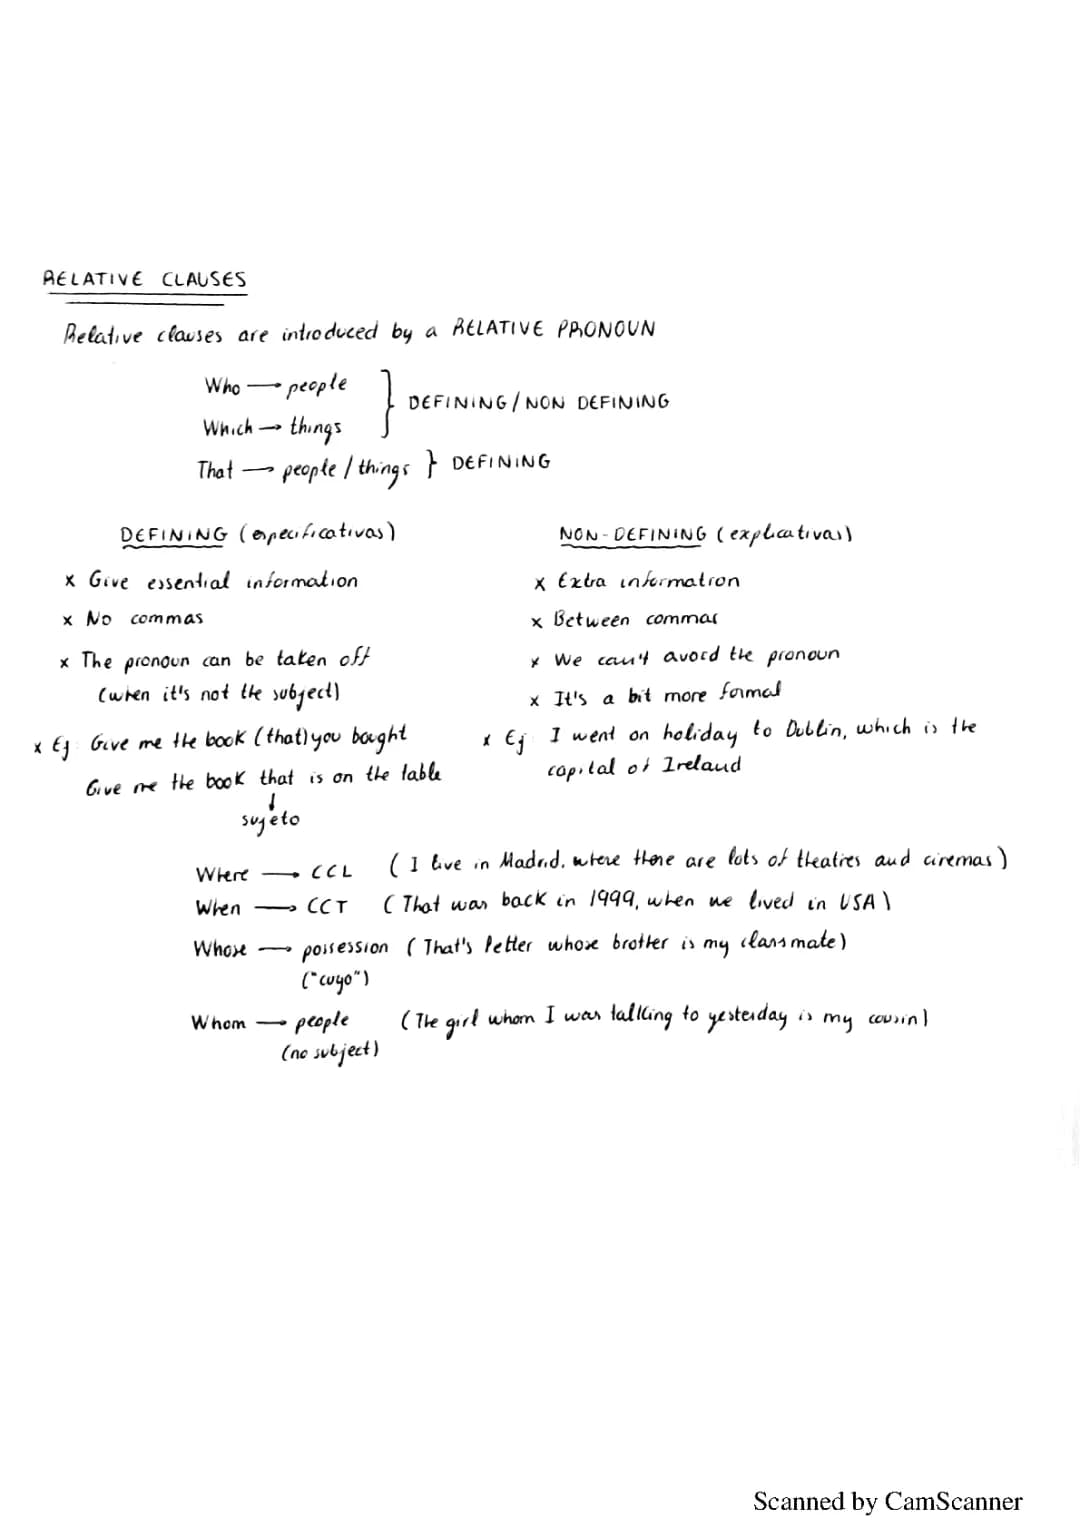 RELATIVE CLAUSES
Relative clauses are introduced by a RELATIVE PRONOUN
Who → people } DEFINING / NON DEFINING
Which → things
That → people / things } DEFINING
DEFINING (especificativas)
NON-DEFINING (explicativas)
x Give essential information
x No commas
x The pronoun can be taken off
(when it's not the subject)
x Ej: Give me the book (that) you bought
Give me the book that is on the table
↓
sujeto
x Extra information
x Between commas
x We can't avoid the pronoun
x It's a bit more formal
x Ej: I went on holiday to Dublin, which is the
capital of Ireland
Where → CCL (I live in Madrid, where there are lots of theatres and cinemas)
When → CCT (That was back in 1999, when we lived in USA)
Whose → possession (That's Petter whose brother is my classmate)
("cuyo")
Whom → people (The girl whom I was tallking to yesterday is my cousin)
(no subject)
Scanned by CamScanner